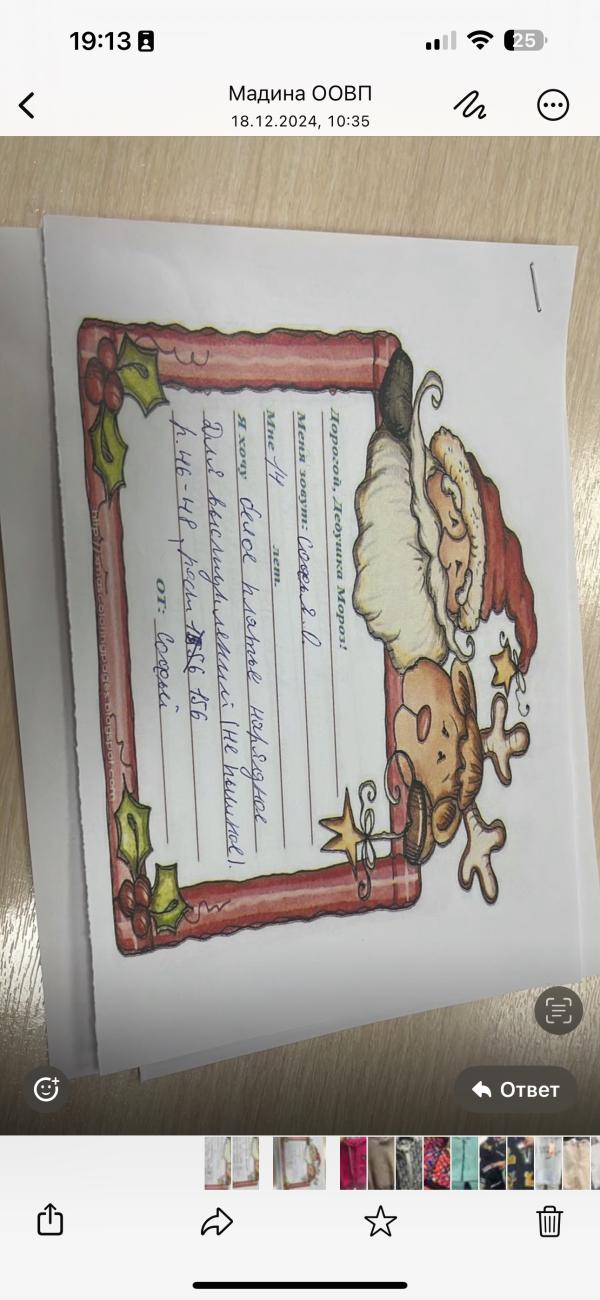 19:13
25
Мадина ООВП
18.12.2024, 10:35
Дорогой, Дедушка Мороз!
Меня зовут: Софья. О.
Мне 14 лет.
Я хочу белое платье нарядное
Для выступлений (не пышное).
р. 46-48, рост 156
от: Софьи
http://anascoloringpages.blogspot.com
Ответ